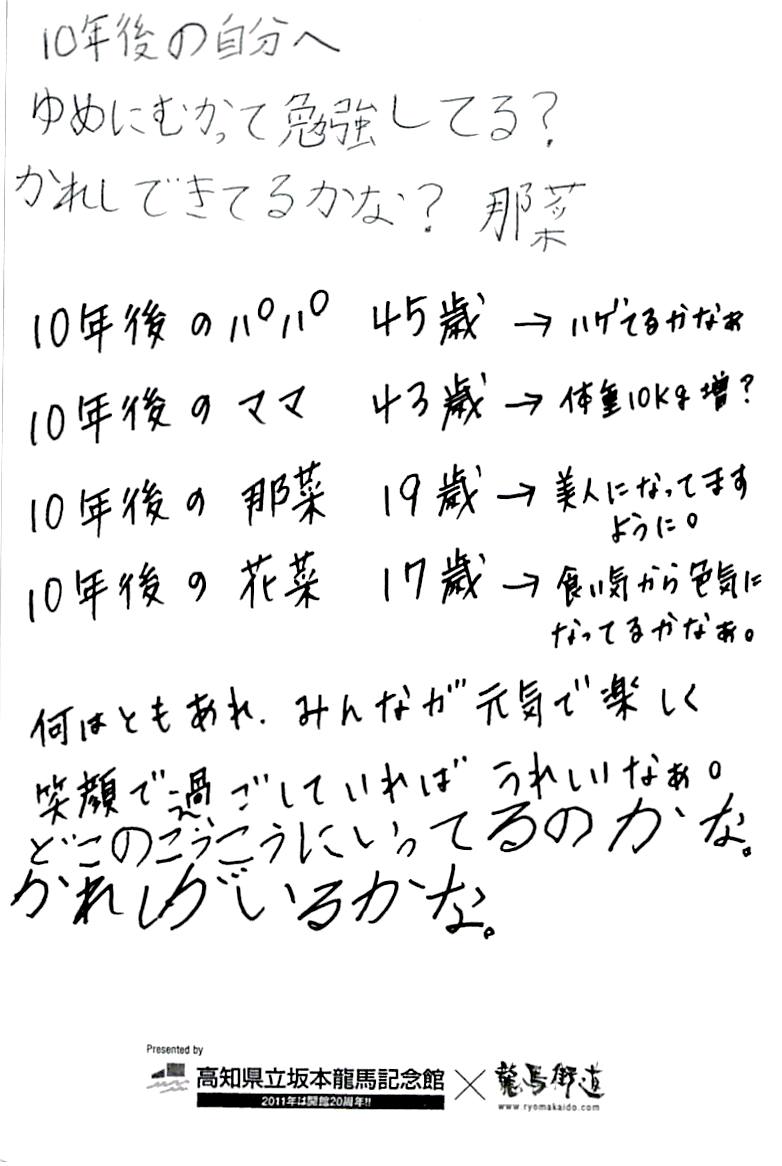 10年後の自分へ
ゆめにむかって勉強してる?
かれしできてるかな? 那菜
10年後のパパ 45歳 → ハゲてるかなぁ
10年後のママ 43歳 → 体重10kg増?
10年後の那菜 19歳 → 美人になってます
ように。
10年後の花菜 17歳 → 食い気から色気に
なってるかなぁ。
何はともあれ、みんなが元気で楽しく
笑顔で過ごしていればうれしいなぁ。
どこのこうこうにいってるのかな。
かれしがいるかな。
Presented by
高知県立坂本龍馬記念館 × 龍馬街道
2011年は開館20周年!!
www.ryomakaido.com